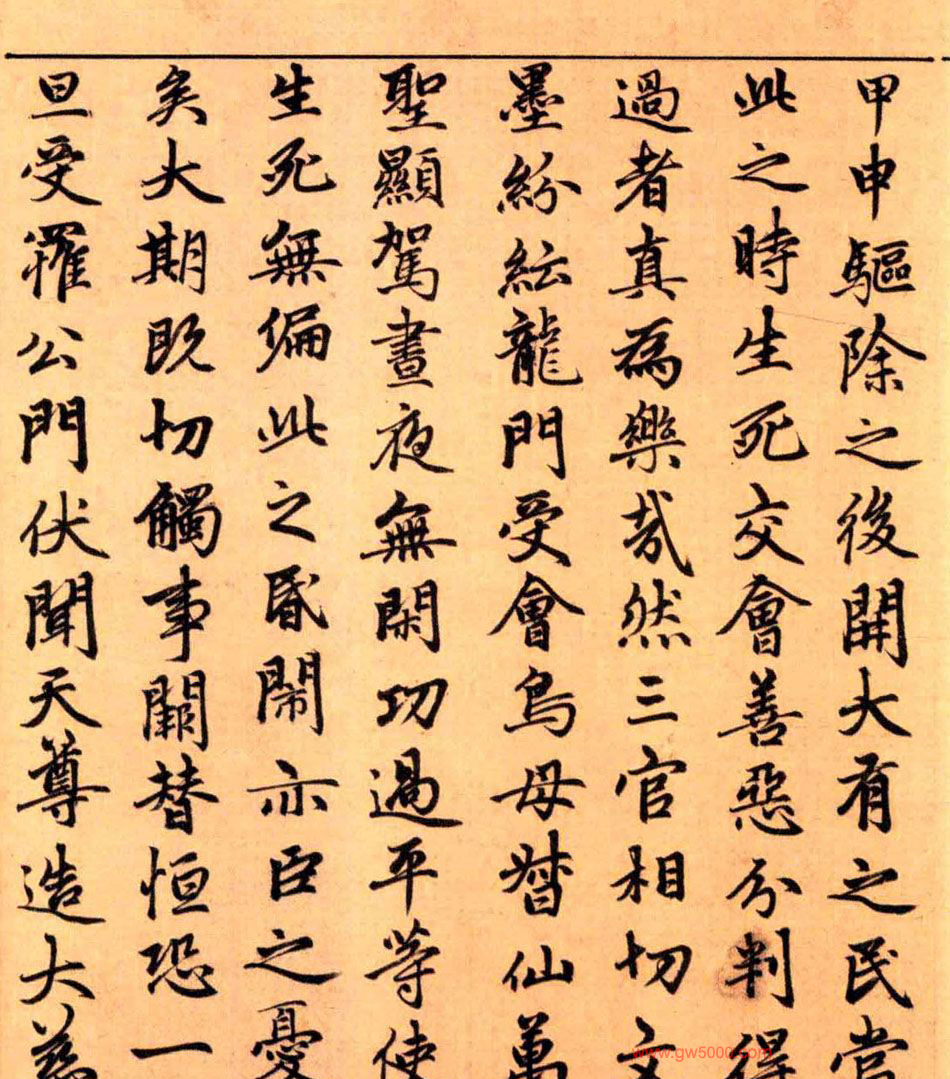 甲申驅除之後開大有之民當
此之時生死交會善惡分判得
過者真為樂哉然三官相切文
墨紛紜龍門受會鳥母督仙萬
聖顯駕晝夜無閑功過平等使
生死無偏此之昏鬧亦臣之憂
矣大期既切觸事闕替恒恐一
旦受罹公門伏聞天尊造大慈
www.gw5000.com